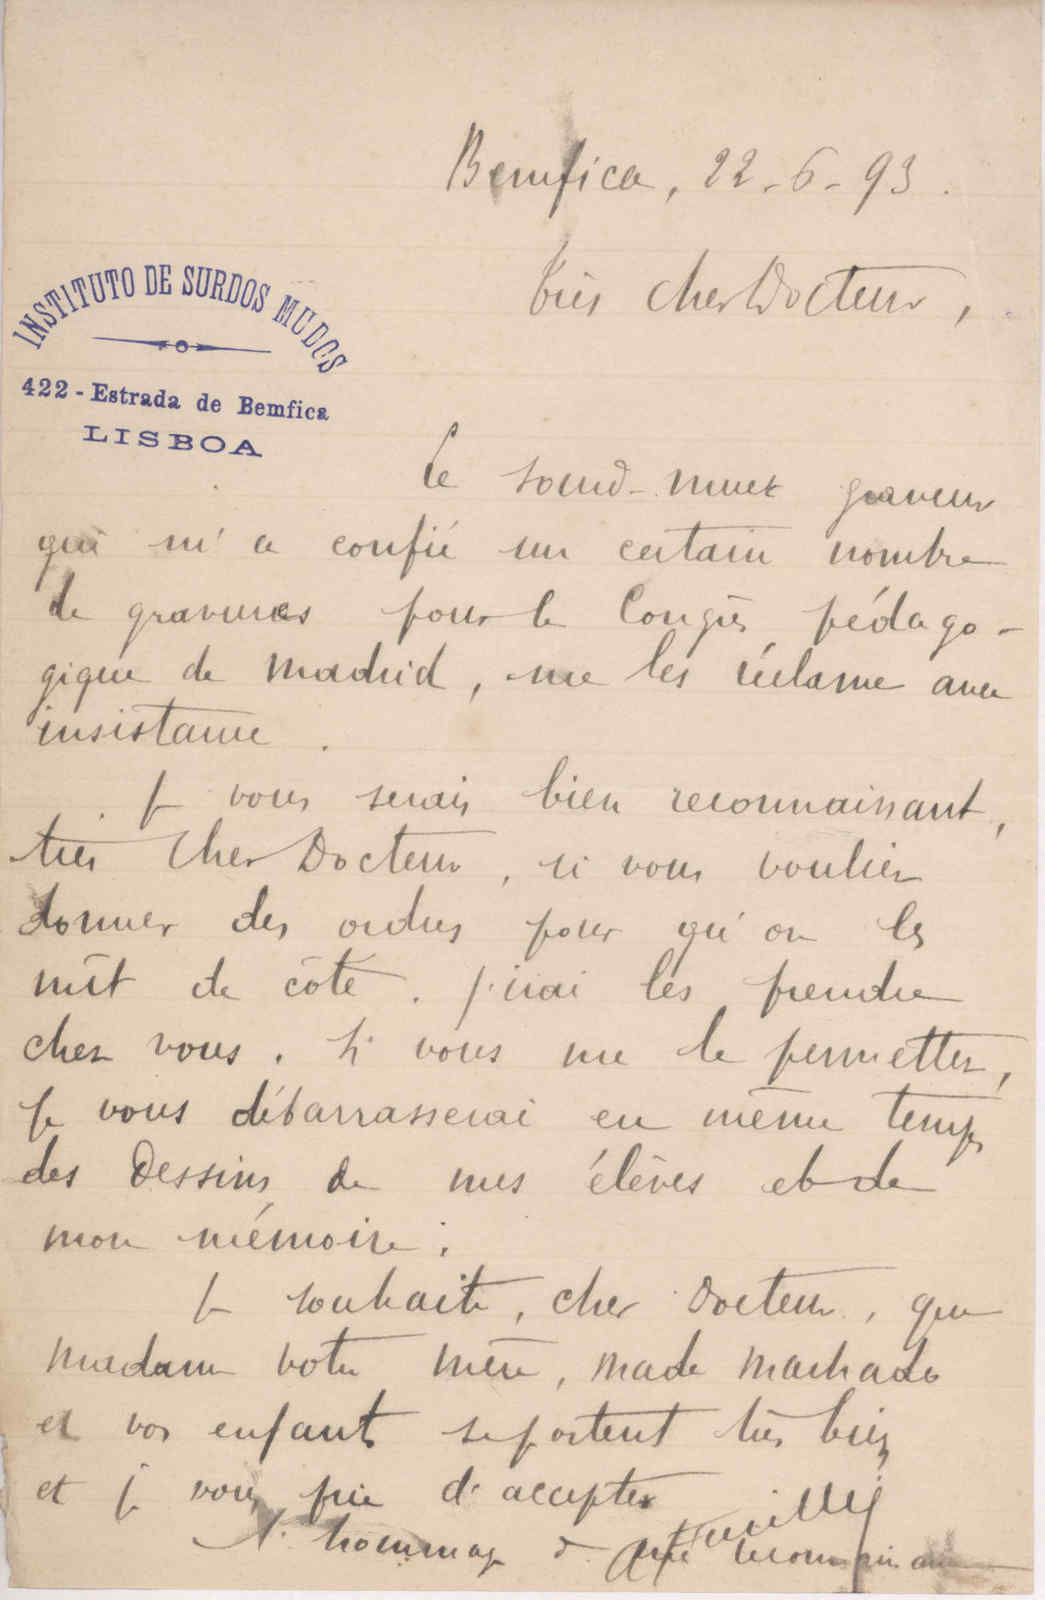 Bemfica, 22-6-93.
Très cher Docteur,
INSTITUTO DE SURDOS MUDOS
422 - Estrada de Bemfica
LISBOA
Le sourd-muet graveur
qui m'a confié un certain nombre
de gravures pour le Congrès pédago-
gique de Madrid, me les réclame avec
insistance.
Je vous serais bien reconnaissant,
très cher Docteur, si vous vouliez
donner des ordres pour qu'on les
mît de côté. J'irai les prendre
chez vous. Si vous me le permettez,
je vous débarrasserai en même temps
des dessins de mes élèves et de
mon mémoire.
Je souhaite, cher Docteur, que
madame votre mère, Made Machado
et vos enfants se portent très bien
et je vous prie d'accepter
l'hommage de